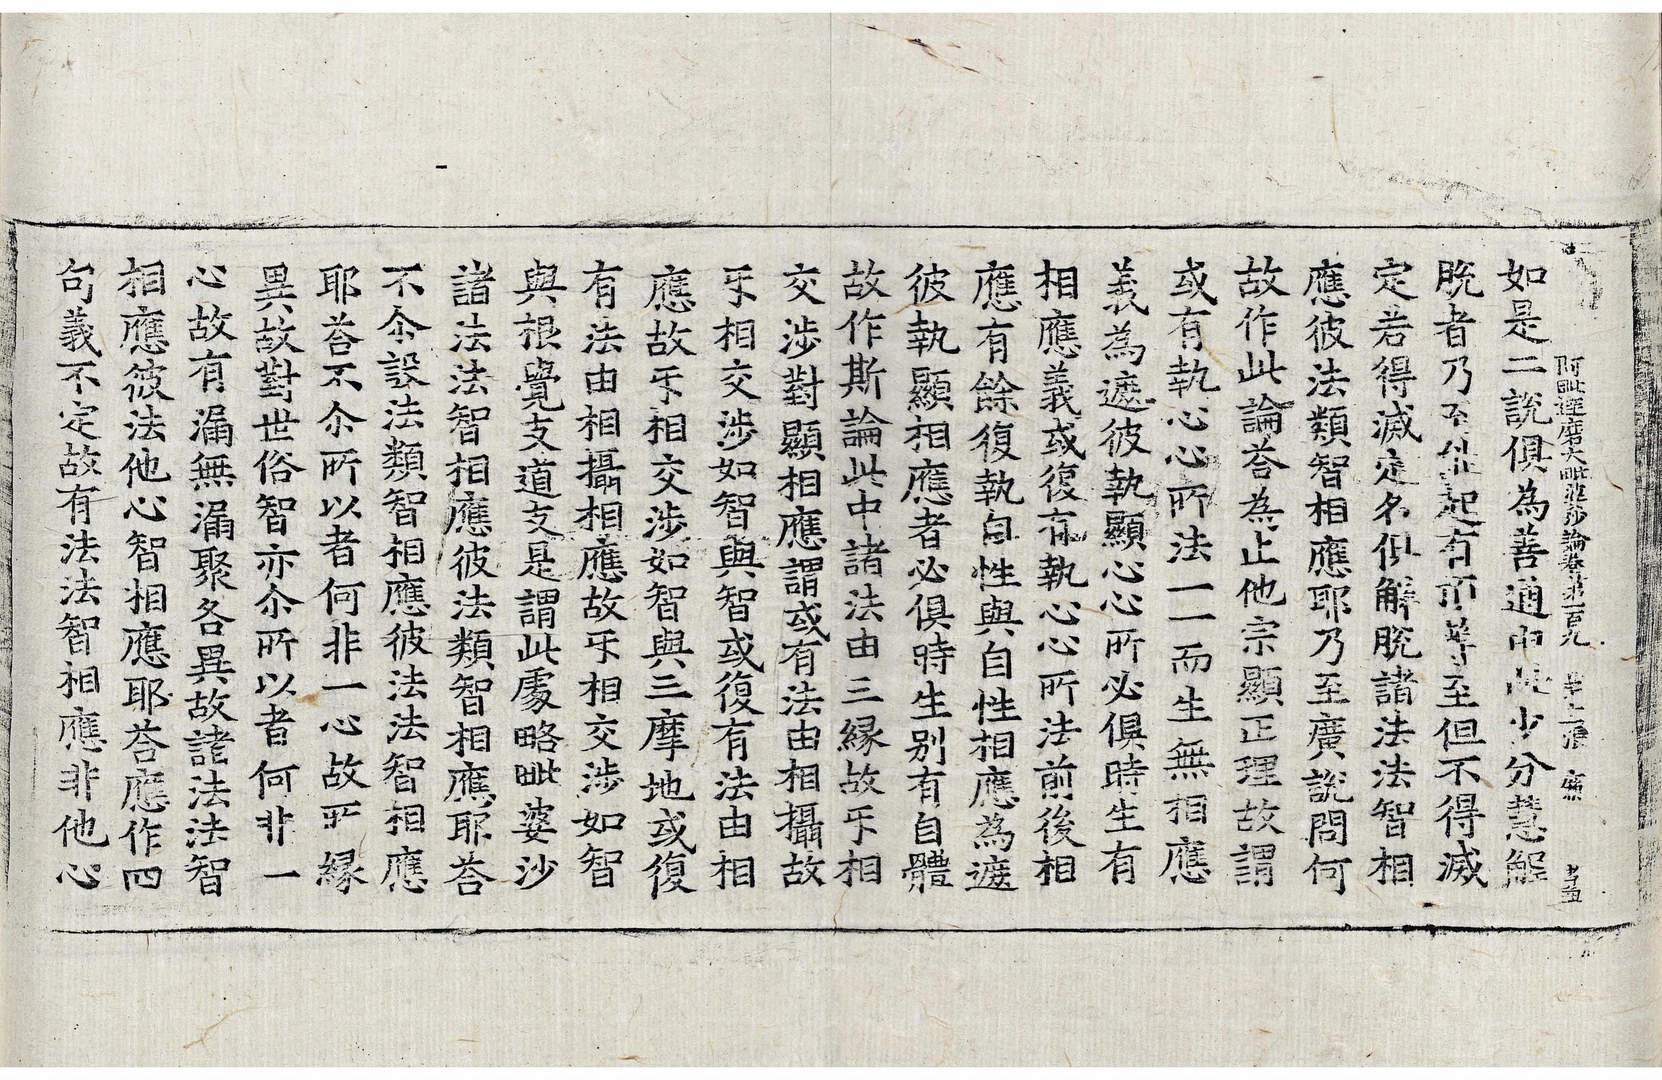 如是二說俱為善通由此少分慧解
阿毗達磨大毗婆沙論卷第一百九
脫者乃至能起有頂等至但不得滅
定若得滅定名俱解脫諸法法智相
應彼法類智相應耶乃至廣說問何
故作此論荅為止他宗顯正理故謂
或有執心心所法一一而生無相應
義為遮彼執顯心心所必俱時生有
相應義或復有執心心所法前後相
應有餘復執自性與自性相應為遮
彼執顯相應者必俱時生别有自體
故作斯論此中諸法由三緣故㸦相
交涉對顯相應謂或有法由相攝故
㸦相交涉如智與智或復有法由相
應故㸦相交涉如智與三摩地或復
有法由相攝相應故㸦相交涉如智
與根覺支道支是謂此處略毗婆沙
諸法法智相應彼法類智相應耶荅
不尒設法類智相應彼法法智相應
耶荅不尒所以者何非一心故所緣
異故對世俗智亦尒所以者何非一
心故有漏無漏聚各異故諸法法智
相應彼法他心智相應耶荅應作四
句義不定故有法法智相應非他心